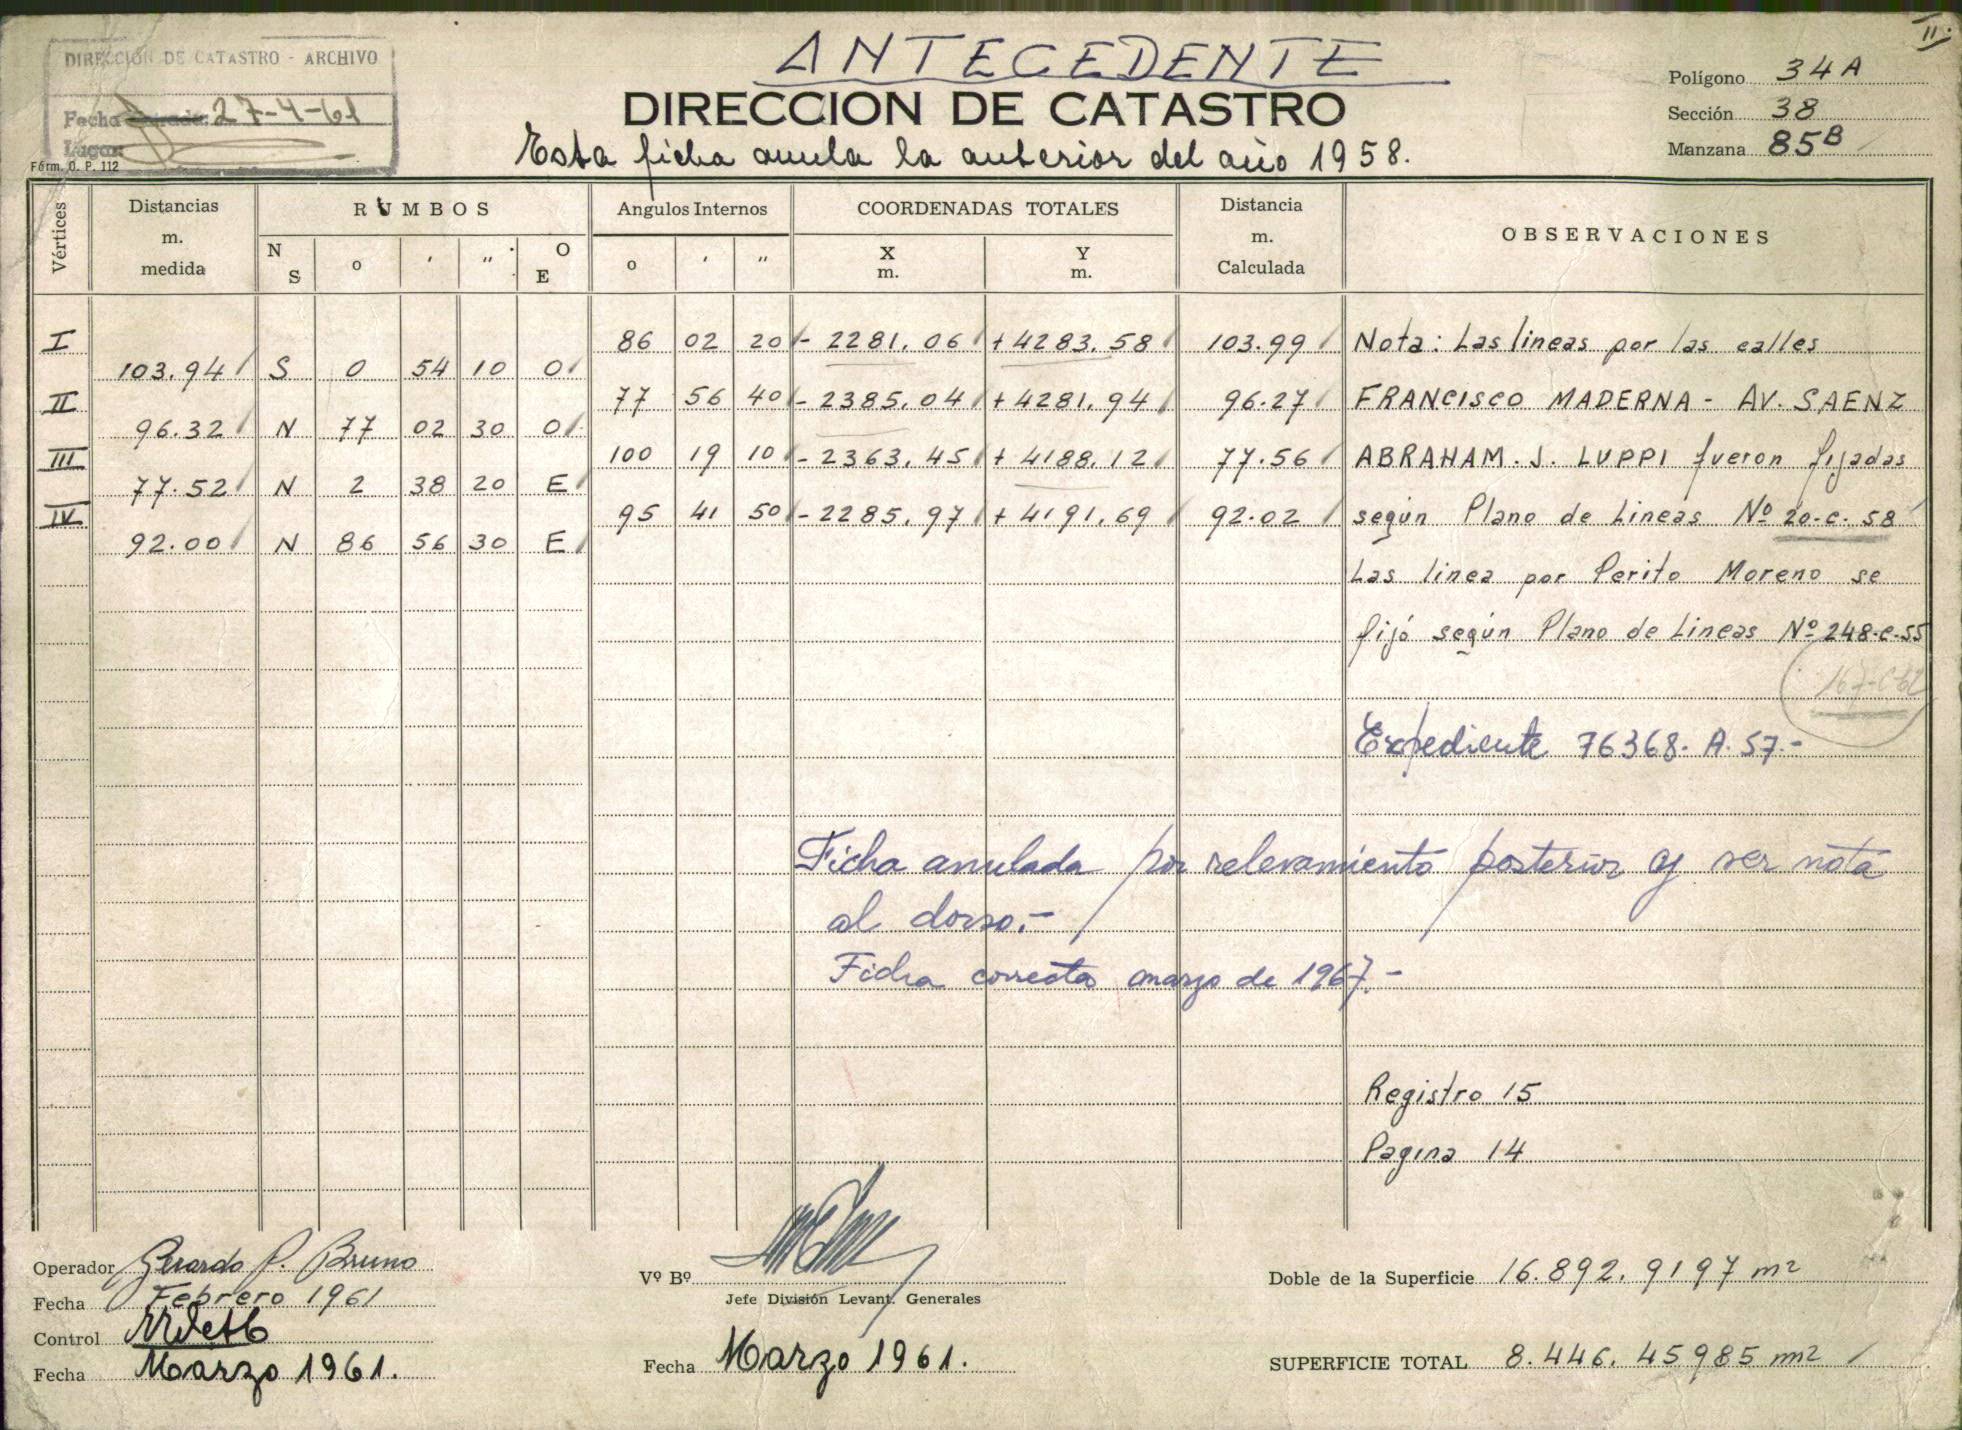 II.
ANTECEDENTE
DIRECCION DE CATASTRO - ARCHIVO
Fecha Entrada: 27-4-61
Lugar:
Fórm. O. P. 112
DIRECCION DE CATASTRO
Esta ficha anula la anterior del año 1958.
Polígono 34A
Sección 38
Manzana 85B
Vértices
Distancias m. medida
RUMBOS
N S o ' " O E
Angulos Internos
o ' "
COORDENADAS TOTALES
X m. Y m.
Distancia m. Calculada
OBSERVACIONES
I 86 02 20 - 2281.06 + 4283.58 103.99 Nota: Las lineas por las calles
103.94 S 0 54 10 O
II 77 56 40 - 2385.04 + 4281.94 96.27 FRANCISCO MADERNA - AV. SAENZ
96.32 N 77 02 30 O
III 100 19 10 - 2363.45 + 4188.12 77.56 ABRAHAM. J. LUPPI fueron fijadas
77.52 N 2 38 20 E
IV 95 41 50 - 2285.97 + 4191.69 92.02 según Plano de Lineas Nº 20-c-58
92.00 N 86 56 30 E
Las linea por Perito Moreno se
fijó según Plano de Lineas Nº 248-c-55
167-C-62
Expediente 76368. A. 57.-
Ficha anulada por relevamiento posterior y ver nota
al dorso.-
Ficha correcta marzo de 1967.-
Registro 15
Pagina 14
Operador Gerardo P. Bruno
Fecha Febrero 1961
Control
Fecha Marzo 1961.
Vº Bº
Jefe División Levant. Generales
Fecha Marzo 1961.
Doble de la Superficie 16.892.9197 m2
SUPERFICIE TOTAL 8.446.45985 m2